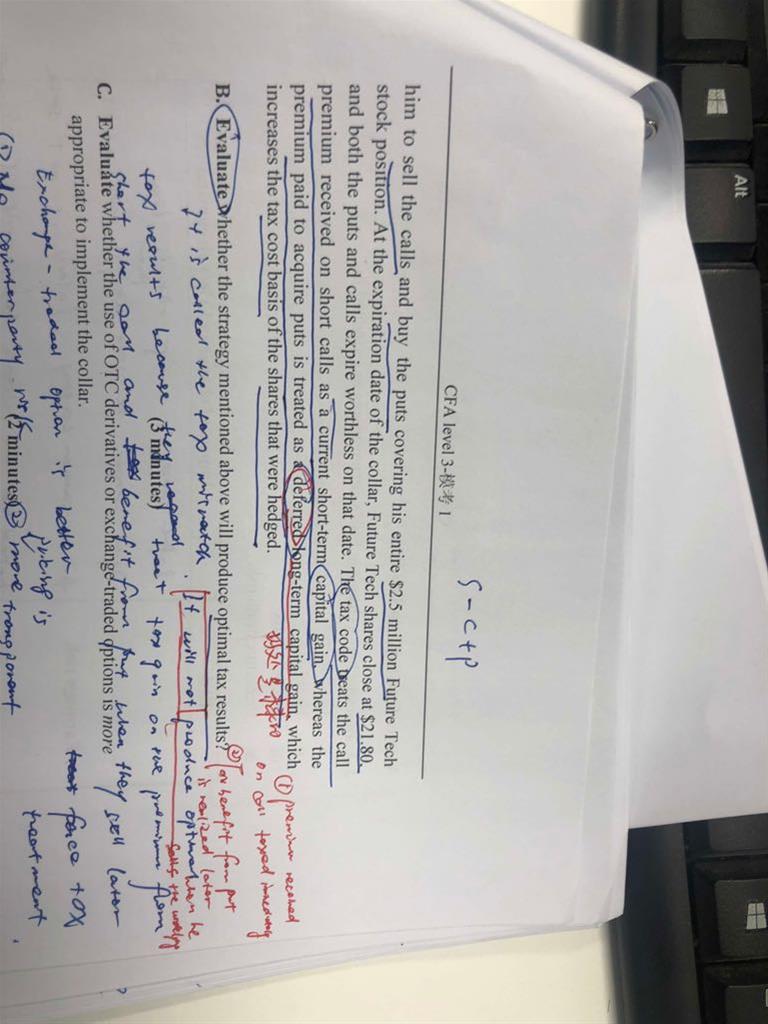 CFA level 3-模考 1
S - c + p
him to sell the calls and buy the puts covering his entire $2.5 million Future Tech
stock position. At the expiration date of the collar, Future Tech shares close at $21.80,
and both the puts and calls expire worthless on that date. The tax code treats the call
premium received on short calls as a current short-term capital gain, whereas the
premium paid to acquire puts is treated as a deferred long-term capital gain, which
increases the tax cost basis of the shares that were hedged.
① premium received
on call taxed
B. Evaluate whether the strategy mentioned above will produce optimal tax results?
② benefit from put
is realized later
when he
sells the
It is called the tax mismatch. It will not produce optimal
tax results because they (3 minutes) treat tax gain on the premium from
short the call and benefit from put when they sell later
C. Evaluate whether the use of OTC derivatives or exchange-traded options is more
appropriate to implement the collar.
face tax
treatment.
Exchange-traded option is better
(2 minutes)
(1) No counterparty risk ② pricing is more transparent
Alt